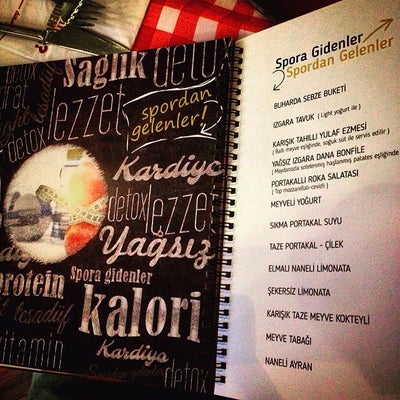 Sağlık
detox
lezzet
spordan
gelenler!
detox
Kardiyo
detox
lezzet
Yağsız
protein
Spora gidenler
kalori
vitamin
Kardiyo
detox
Spordan gelenler
Spora Gidenler
Spordan Gelenler
BUHARDA SEBZE BUKETİ
IZGARA TAVUK ( Light yoğurt ile )
KARIŞIK TAHILLI YULAF EZMESİ
( Ballı meyve eşliğinde, soğuk süt ile servis edilir )
YAĞSIZ IZGARA DANA BONFİLE
( Maydanozla sotelenmiş haşlanmış patates eşliğinde
PORTAKALLI ROKA SALATASI
( Top mozzarellalı-cevizli )
MEYVELİ YOĞURT
SIKMA PORTAKAL SUYU
TAZE PORTAKAL - ÇİLEK
ELMALI NANELİ LİMONATA
ŞEKERSİZ LİMONATA
KARIŞIK TAZE MEYVE KOKTEYLİ
MEYVE TABAĞI
NANELİ AYRAN